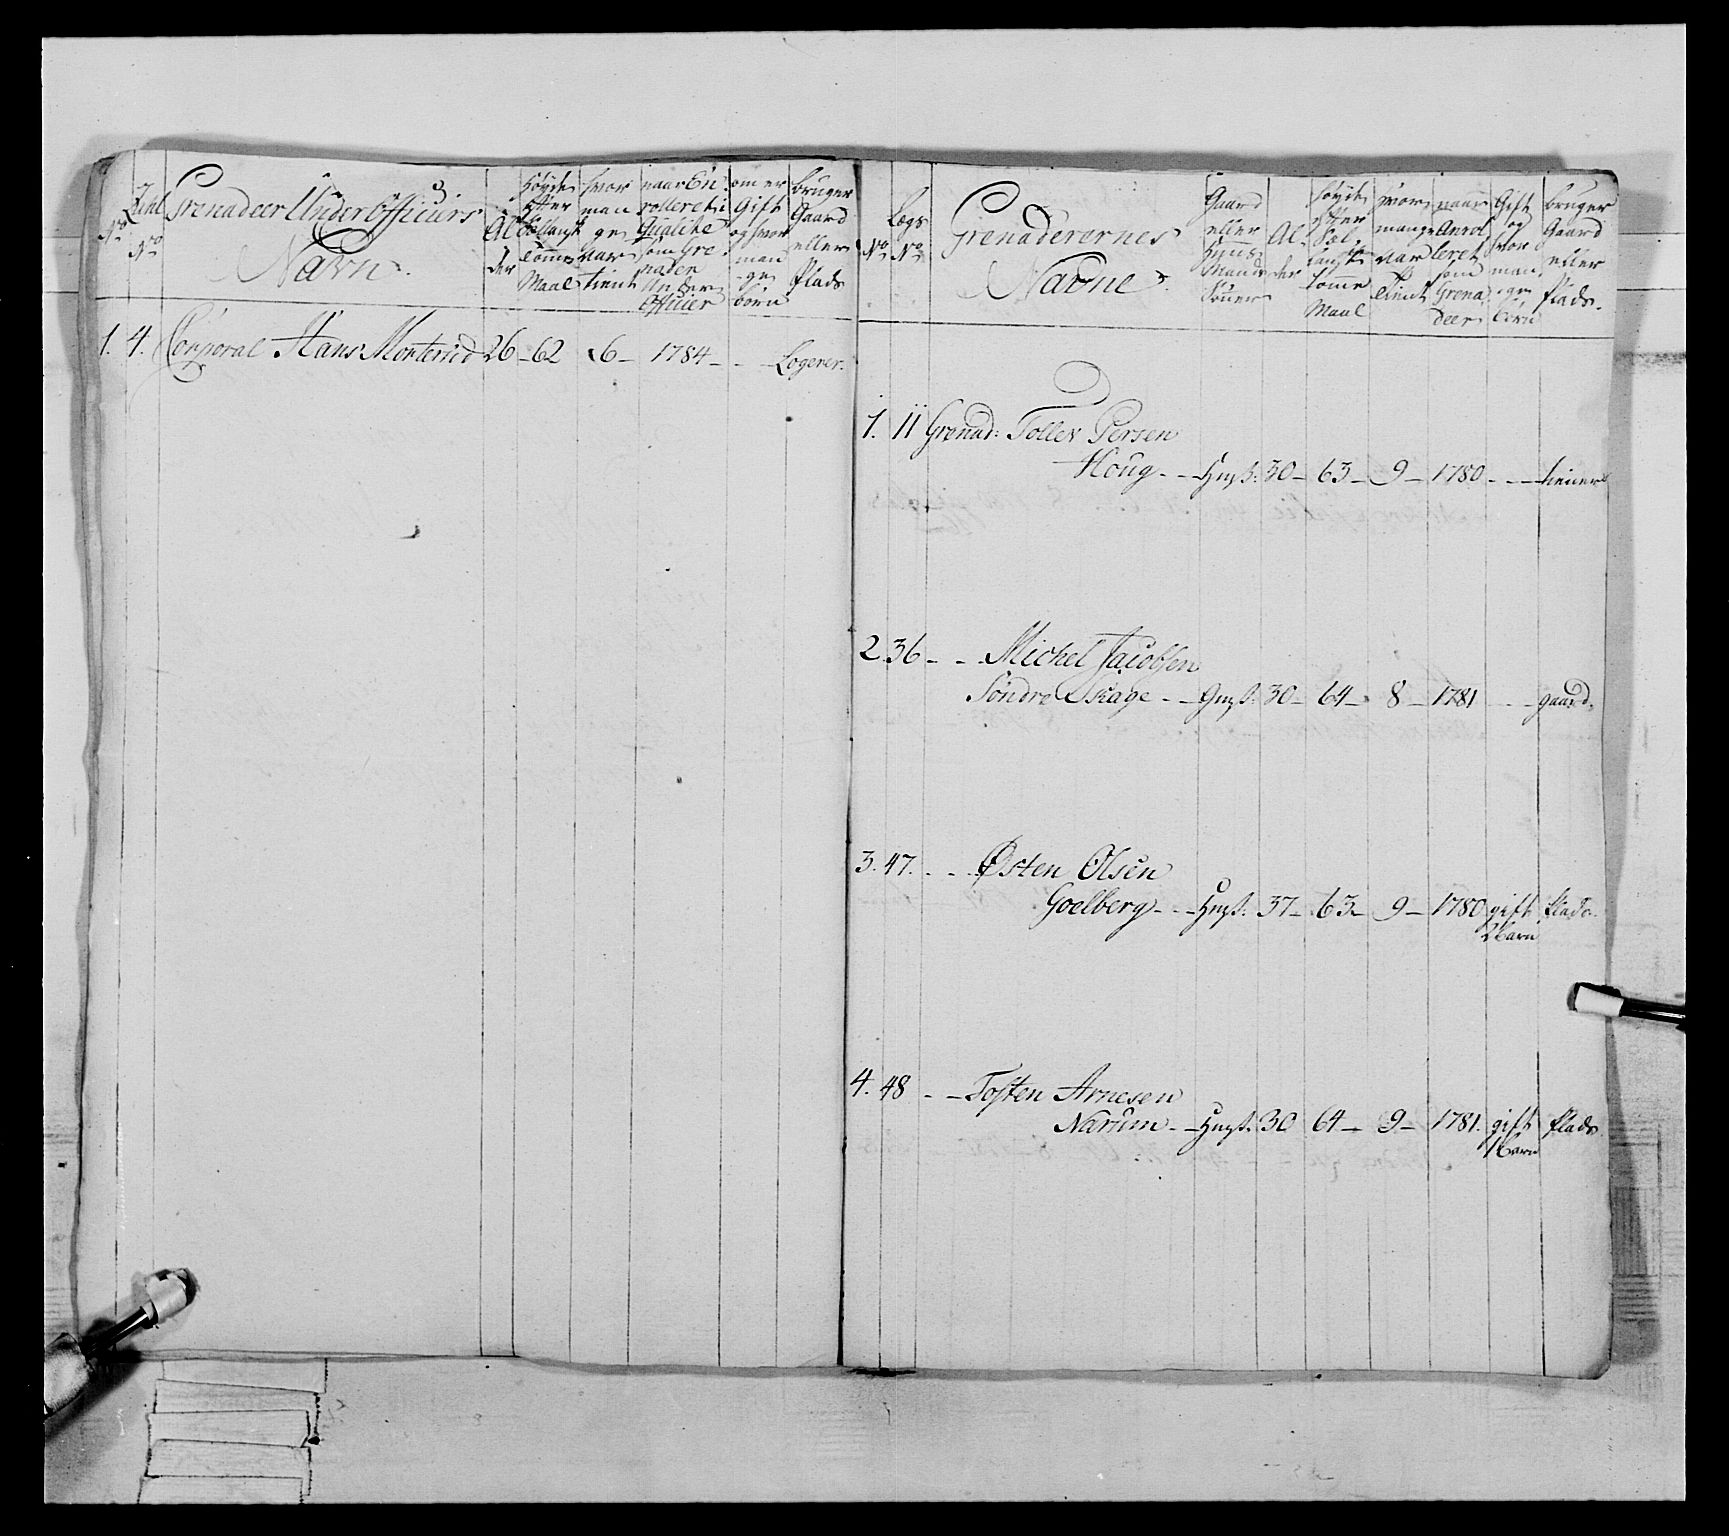 No
No
Grenadeer Underofficiers
Navn.
Al
der
Høyde
efter
Tomme
Maal
hvor
man
ge
var
tient
naar En
rolleret i
Qualité
som Gre
nadeer
Under
Officier
om er
Gift
og hvor
man
ge
børn
bruger
Gaard
eller
Plads
1. 4. Corporal Hans Monterud 26 - 62 6 - 1784 - - - Logerer.
No
Lægs
No
Grenaderernes
Navne.
Gaard
eller
Huus
Mands
Sønner
Al
der
Høyde
efter
Sæl
lansk
Tomme
Maal
hvor
mange
var
Tient
naar
Enrol
leret
som
Grena
deer
Gift
og
hvor
man
ge
børn
bruger
Gaard
eller
Plads.
1. 11 Grenad: Tollev Persen
Houg - - Hmß: 30 - 63 - 9 - 1780 - - - tiener
2. 36 - - - Michel Jacobsen
Søndre Skage - - Gmß: 30 - 64 - 8 - 1781 - - - gaard.
3. 47. - - - Østen Olsen
Goelberg - - - Hmß: 37 - 63 - 9 - 1780 gift Plads.
2 Barn
4. 48 - - Tosten Arnesen
Narum - - Hmß: 30 64 - 9 - 1781. gift Plads
1 Barn